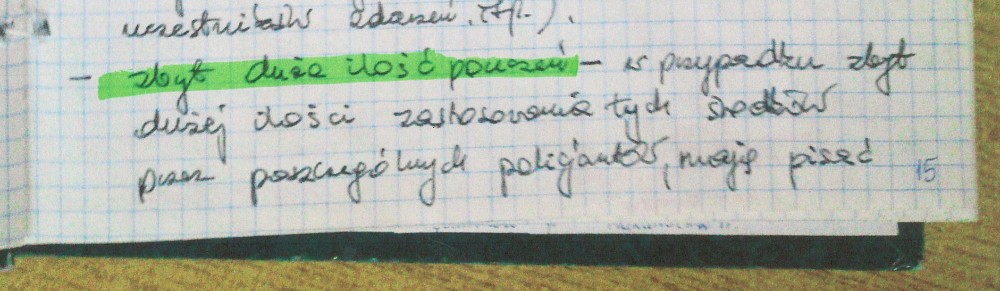 uczestników zdarzeń.
– zbyt duża ilość pouczeń – w przypadku zbyt
dużej ilości zastosowania tych środków
przez poszczególnych policjantów, mają pisać
15